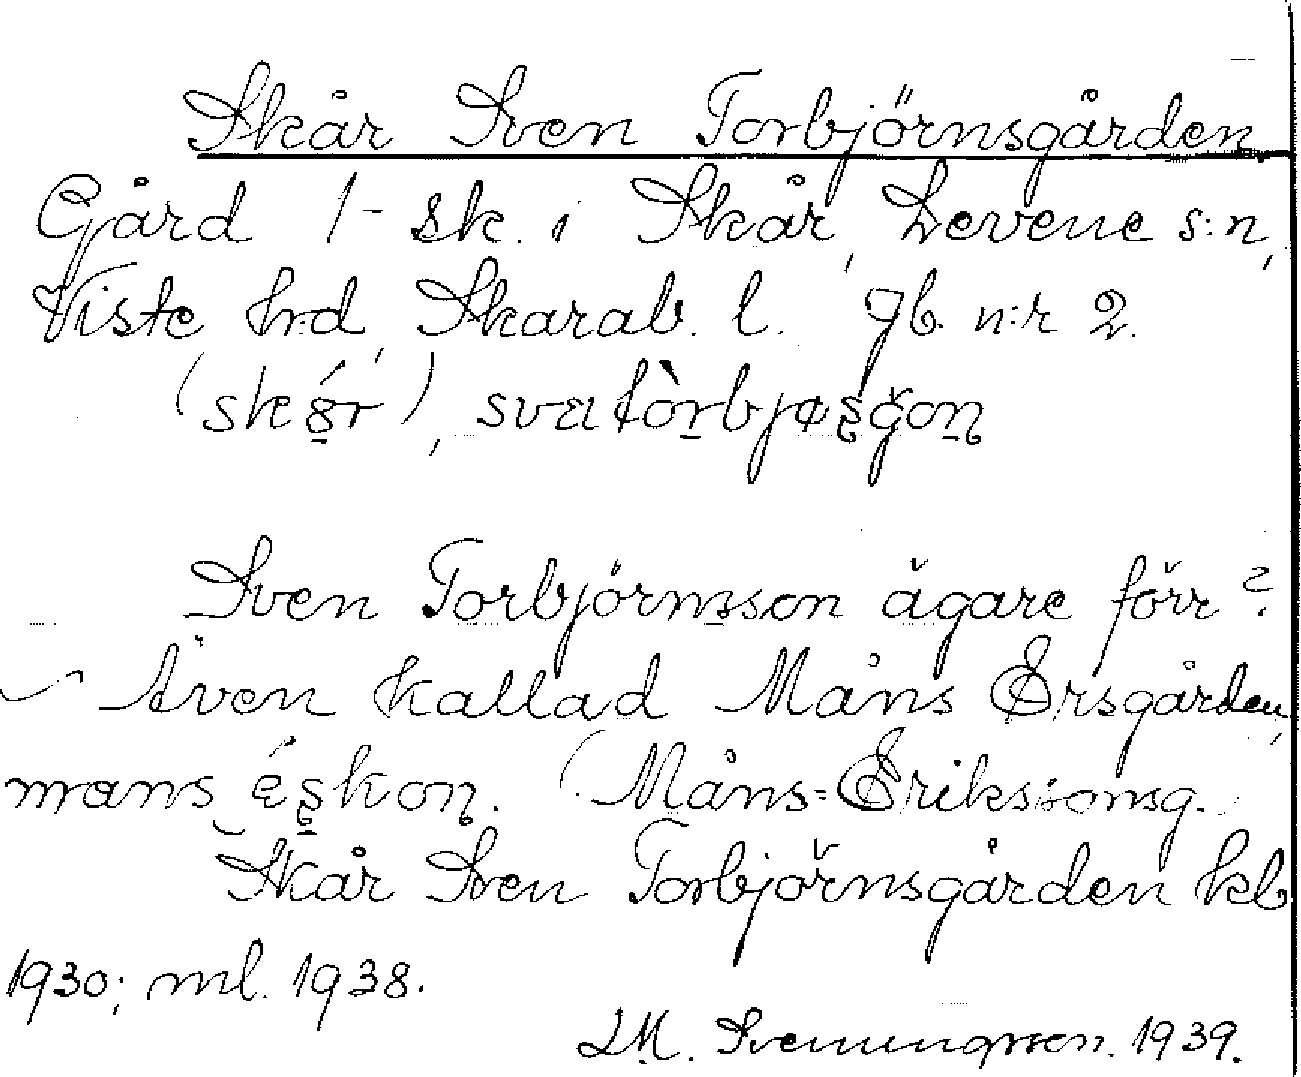 Skår Sven Torbjörnsgården,
Gård 1 - sk. i Skår, Levene s:n,
Viste hrd, Skarab. l. Jb. n:r 2.
(skǿr),
Sven Torbjörnsson ägare förr?
Även kallad Måns Ersgården,
(Måns-Erikssonsg.
Skår Sven Torbjörnsgården kb
1930; ml. 1938.
LM. Svenungsson. 1939.